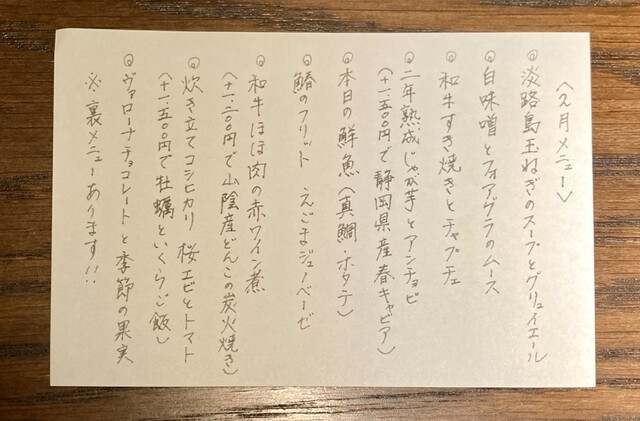 〈2月メニュー〉
◎ 淡路島玉ねぎのスープとグリュイエール
◎ 白味噌とフォアグラのムース
◎ 和牛すき焼きとチャプチェ
◎ 二年熟成じゃが芋とアンチョビ
(+一、五〇〇円で静岡県産春キャビア)
◎ 本日の鮮魚(真鯛・ホタテ)
◎ 鰆のフリット えごまジェノベーゼ
◎ 和牛ほほ肉の赤ワイン煮
(+一、二〇〇円で山陰産どんこの炭火焼き)
◎ 炊き立てコシヒカリ 桜エビとトマト
(+一、五〇〇円で牡蠣といくらご飯)
◎ ヴァローナチョコレートと季節の果実
※ 裏メニューあります!!